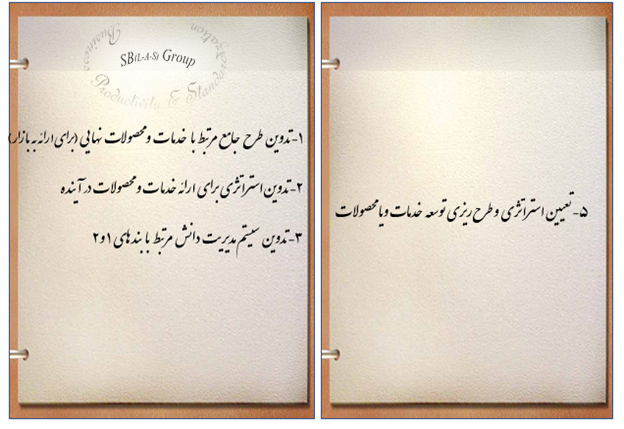 SB(L-A-S) Group
Business
Productivity & Standardization
۱-تدوین طرح جامع مرتبط با خدمات ومحصولات نهایی (برای ارائه به بازار)
۲-تدوین استراتژی برای ارائه خدمات و محصولات در آینده
۳-تدوین سیستم مدیریت دانش مرتبط با بندهای ۱و۲
۵-تعیین استراتژی وطرح ریزی توسعه خدمات ویا محصولات